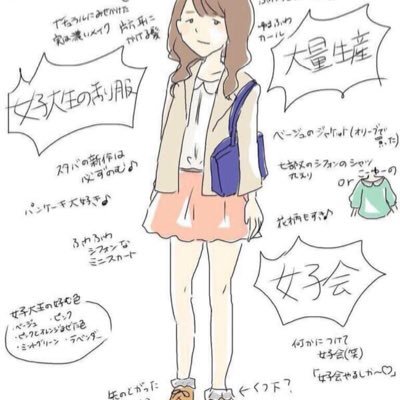 ナチュラルにみせかけた
実は濃いメイク
片方耳に
かける髪
ゆるふわ
カール
大量生産
女子大生の制服
ベージュのジャケット(オリーブで
買った)
七部丈のシフォンのシャツ
丸えり
or
こーゆーの
スタバの新作は
必ずのむ♪
パンケーキ大好き♪
花柄もすき♪
ふわふわ
シフォンな
ミニスカート
女子会
女子大生の好む色
・ベージュ ・ピンク
・ピンクとオレンジまぜた色
・ミントグリーン ・ラベンダー
何かにつけて
女子会(笑)
「女子会やるしか〜♡」
先のとがった
くつ下?